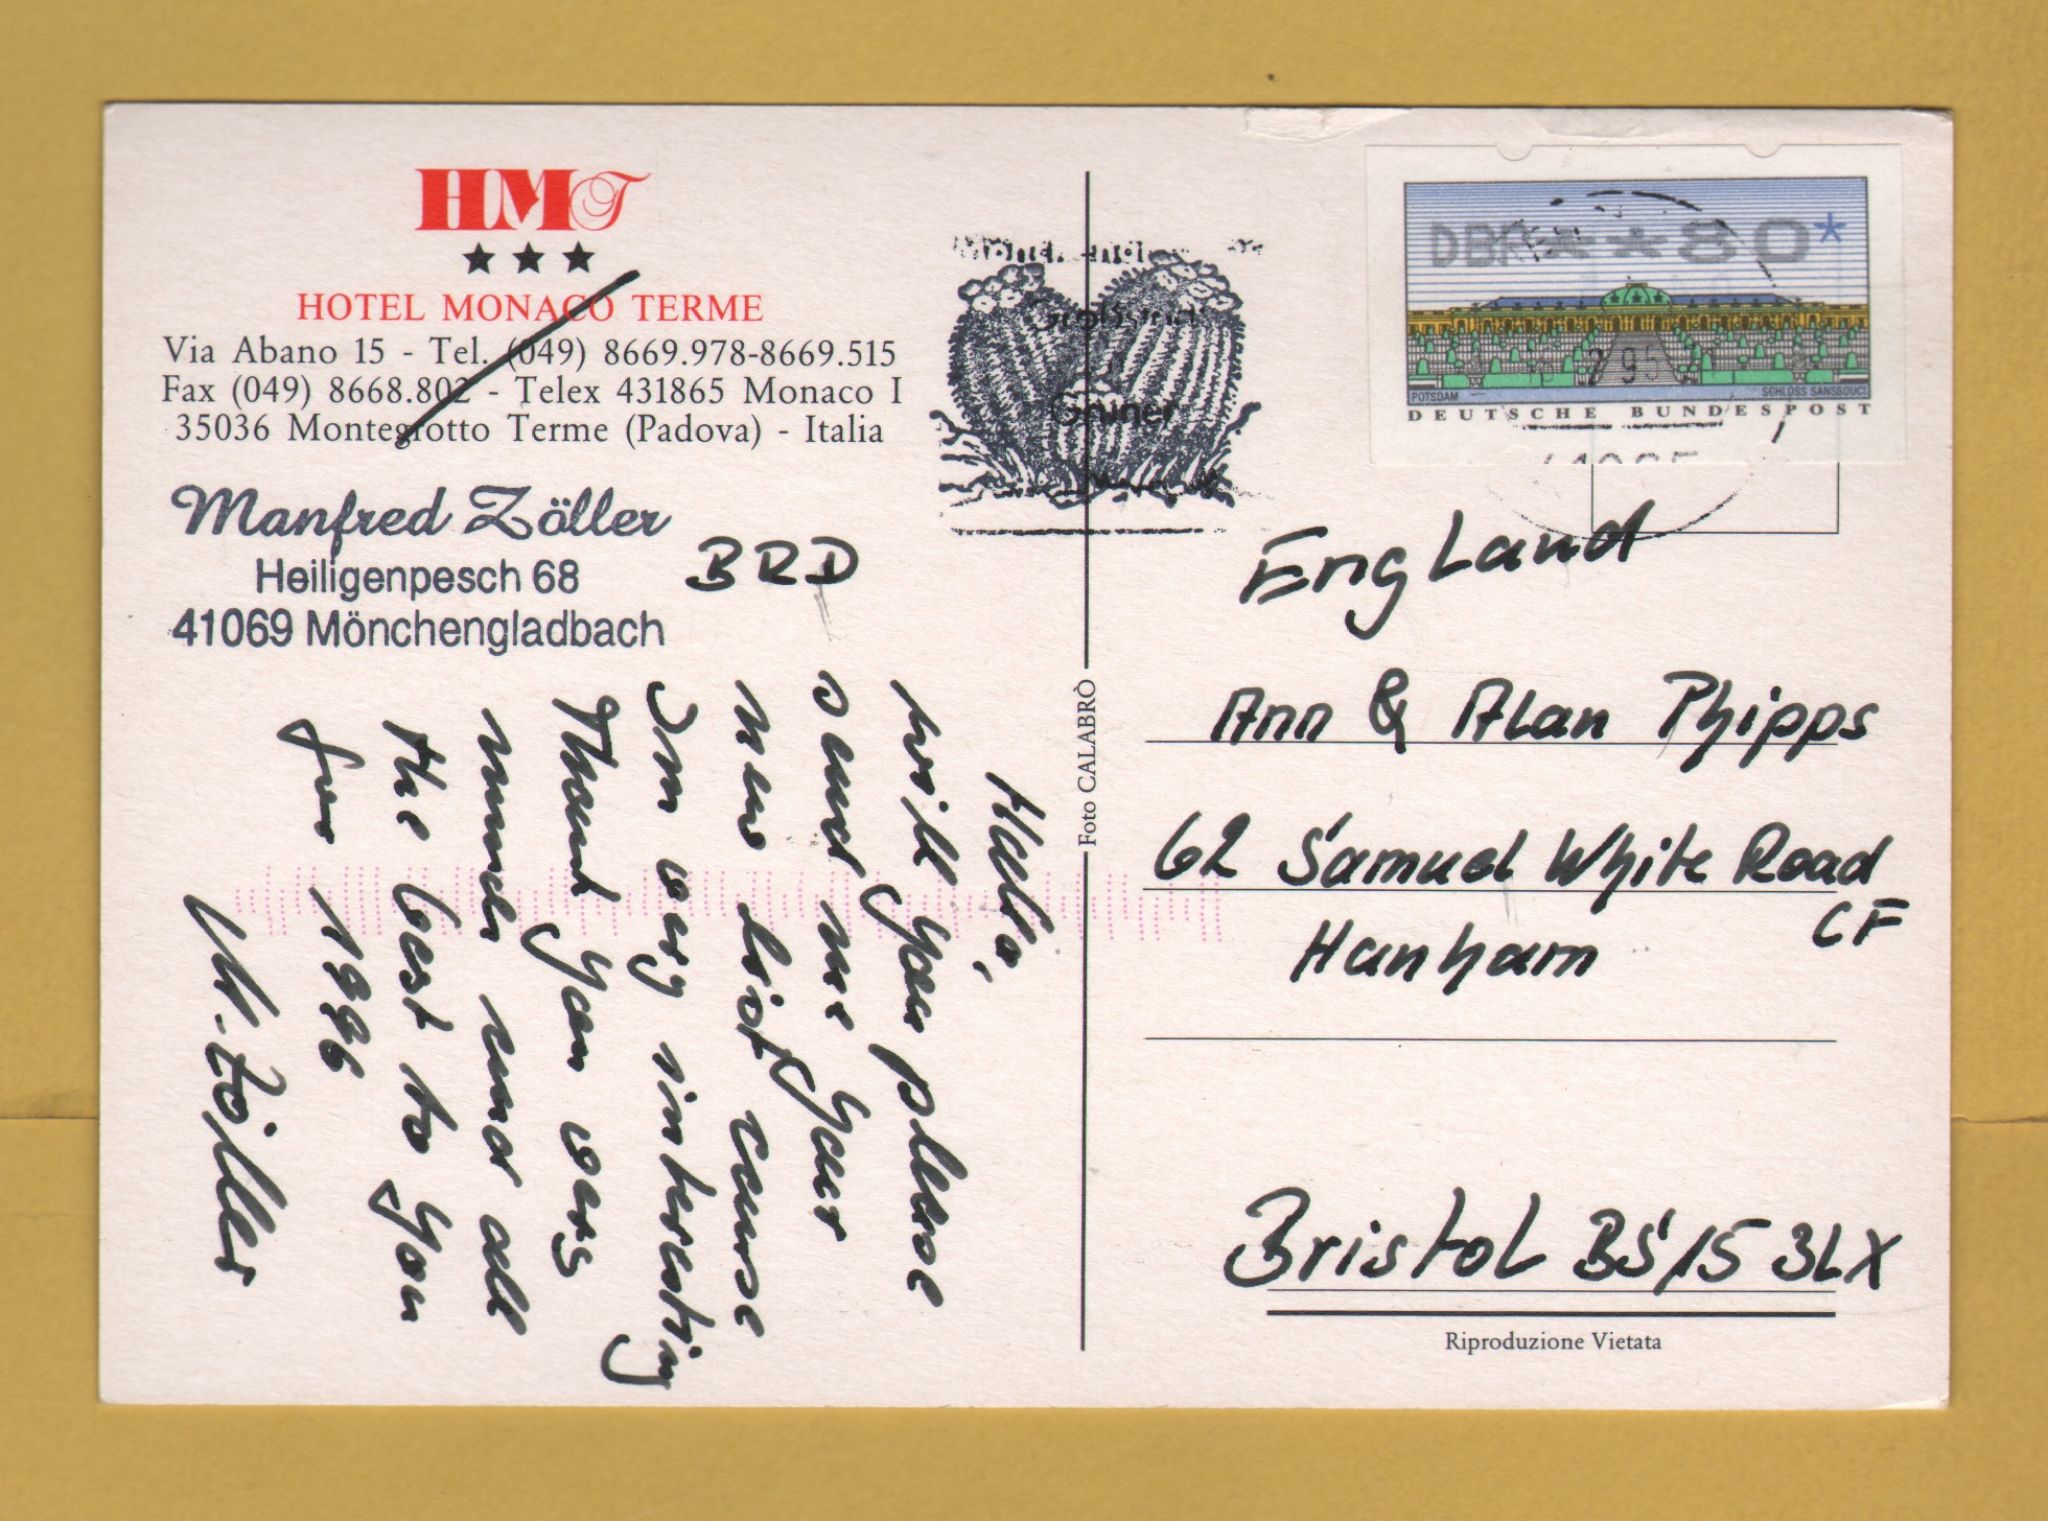 HMT
HOTEL MONACO TERME
Via Abano 15 - Tel. (049) 8669.978-8669.515
Fax (049) 8668.802 - Telex 431865 Monaco I
35036 Montegrotto Terme (Padova) - Italia
Manfred Zöller
Heiligenpesch 68
41069 Mönchengladbach
BRD
Hallo,
will you please
send me your
new list cause
Im very interesting
Thank you very
much and all
the best to you
for 1996
M. Zöller
Foto CALABRÒ
Grüner
DBP**80*
POTSDAM SCHLOSS SANSSOUCI
DEUTSCHE BUNDESPOST
England
Ann & Alan Phipps
62 Samuel White Road
CF
Hanham
Bristol BS15 3LX
Riproduzione Vietata